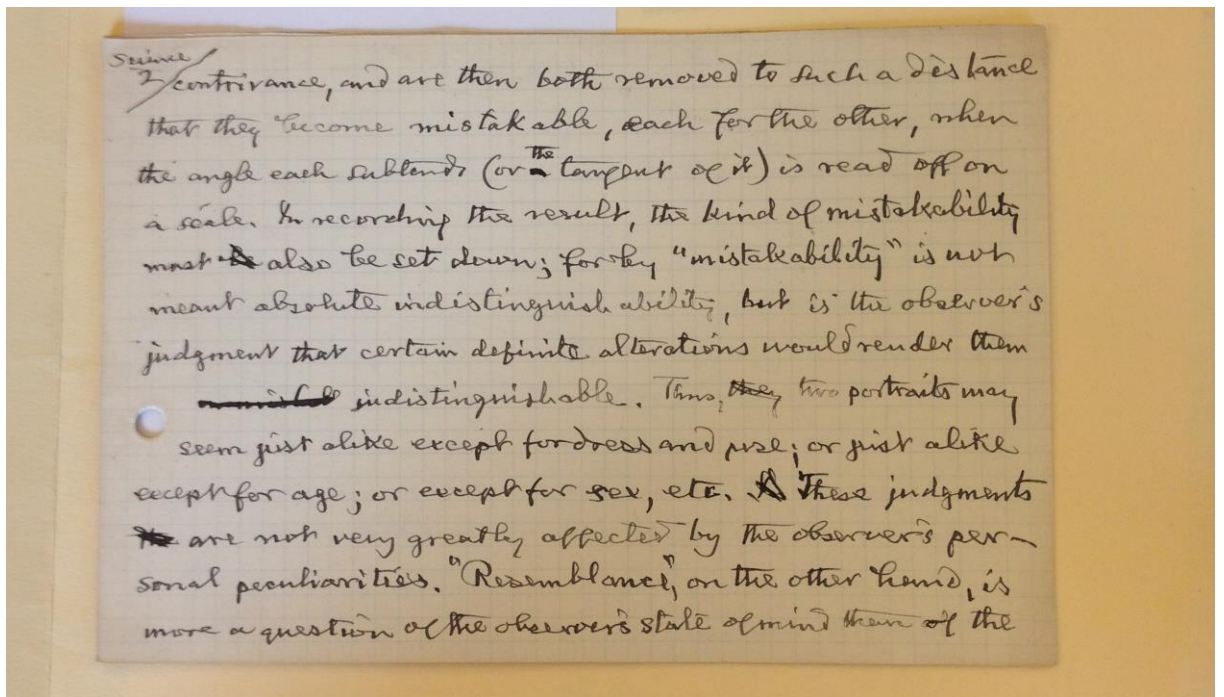 Science
2
contrivance, and are then both removed to such a distance
that they become mistakable, each for the other, when
the angle each subtends (or the tangent of it) is read off on
a scale. In recording the result, the kind of mistakability
must also be set down; for by "mistakability" is not
meant absolute indistinguishability, but is the observer's
judgment that certain definite alterations would render them
indistinguishable. Thus, they two portraits may
seem just alike except for dress and pose; or just alike
except for age; or except for sex, etc. These judgments
are not very greatly affected by the observer's per-
sonal peculiarities. "Resemblance", on the other hand, is
more a question of the observer's state of mind than of the